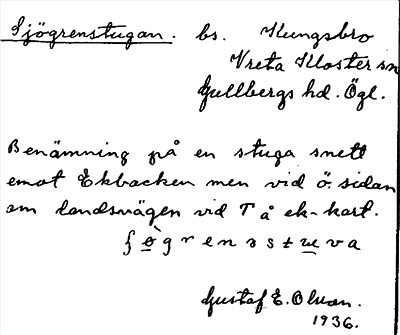 Sjögrenstugan. bs. Kungsbro
Vreta Kloster sn
Gullbergs hd. Ögl.
Benämning på en stuga snett
emot Ekbacken men vid ö. sidan
om landsvägen vid T å ek-kart.
ʃö̀grenstuva
Gustaf E. Olsson.
1936.